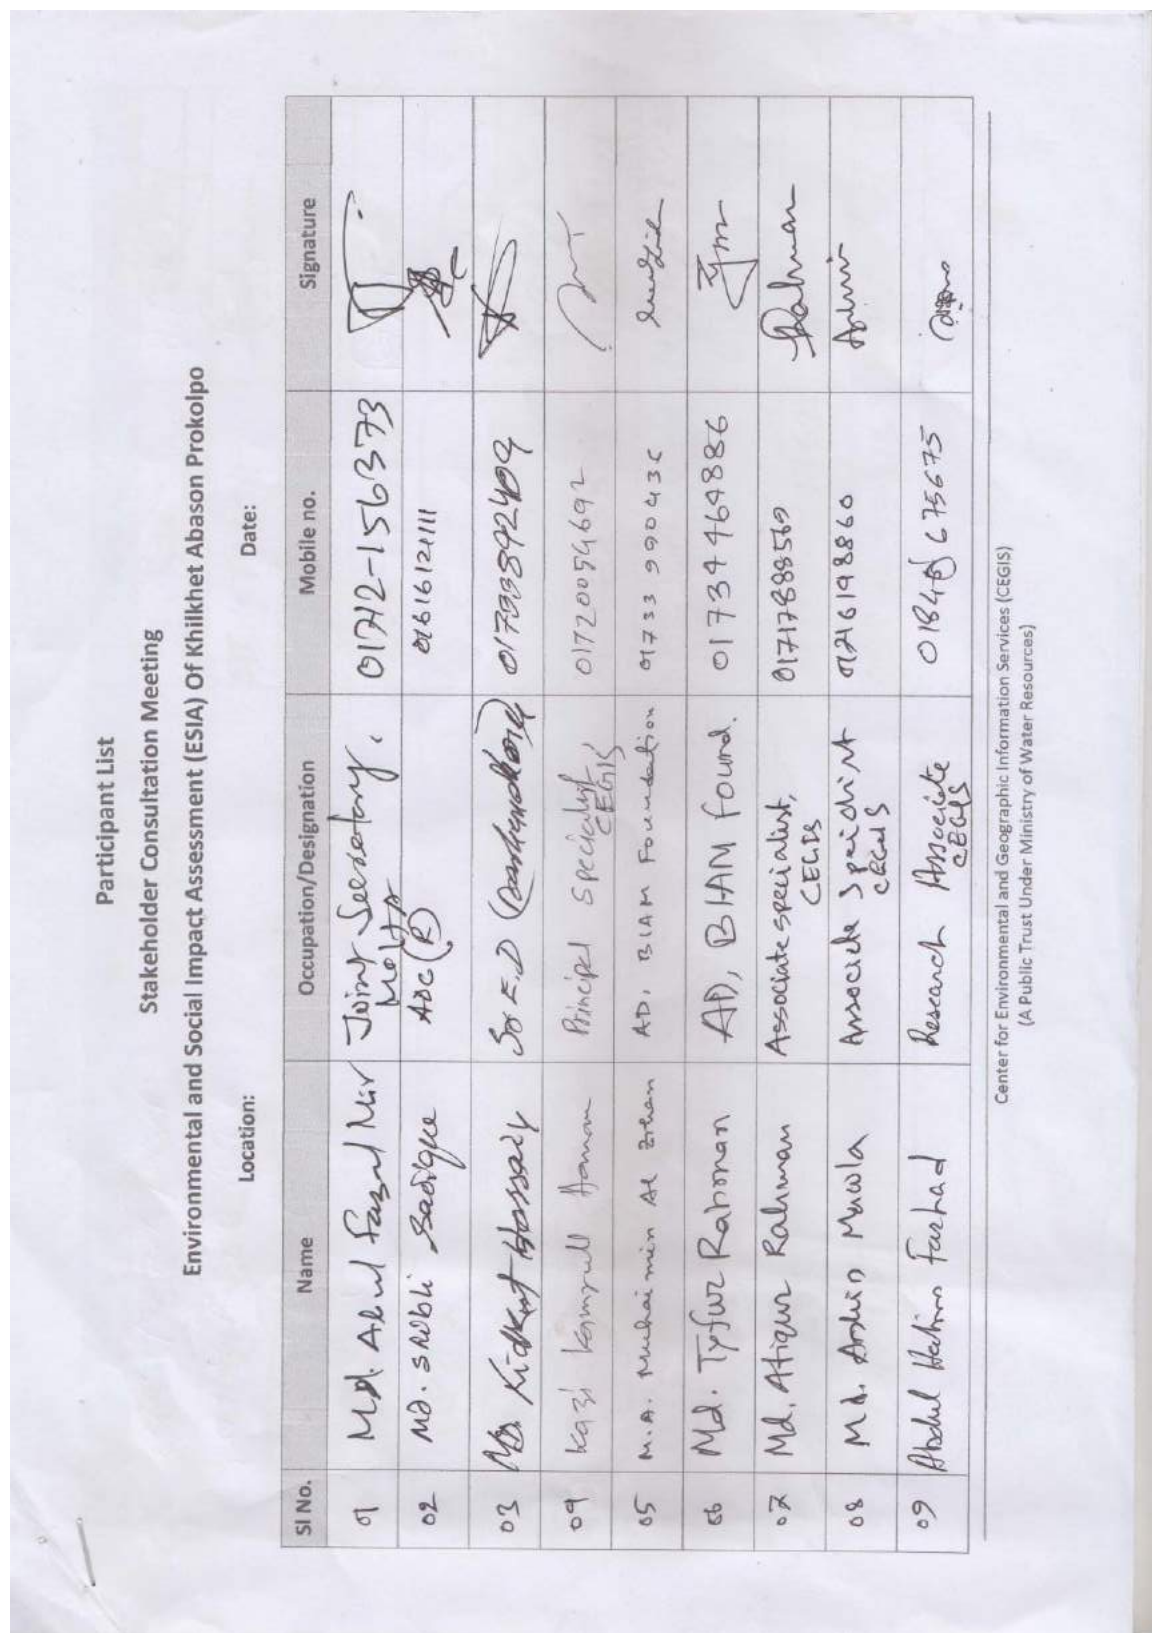 Participant List
Stakeholder Consultation Meeting
Environmental and Social Impact Assessment (ESIA) Of Khilkhet Abason Prokolpo
Location: Date:
Sl No. Name Occupation/Designation Mobile no. Signature
01 Md. Abul Fazal Mir Joint Secretary, 01712-156373
02 Md. Shibli Sadique ADC (R) 01616121111
03 Md. Hossain
04 Kazi Kamrull Hasan Principal Specialist, 01720054692
CEGIS
05 M.A. Muhaimin Al Zihan AD, BIAM Foundation 01733 99043
06 Md. Tyfur Rahman AD, BIAM Found. 01734464886
07 Md. Atiqur Rahman Associate specialist, 01717888569 Rahman
CEGIS
08 Md. Mawla Associate Specialist 01216198860
CEGIS
09 Abdul Hakim Farhad Research Associate 0184 675675
CEGIS
Center for Environmental and Geographic Information Services (CEGIS)
(A Public Trust Under Ministry of Water Resources)